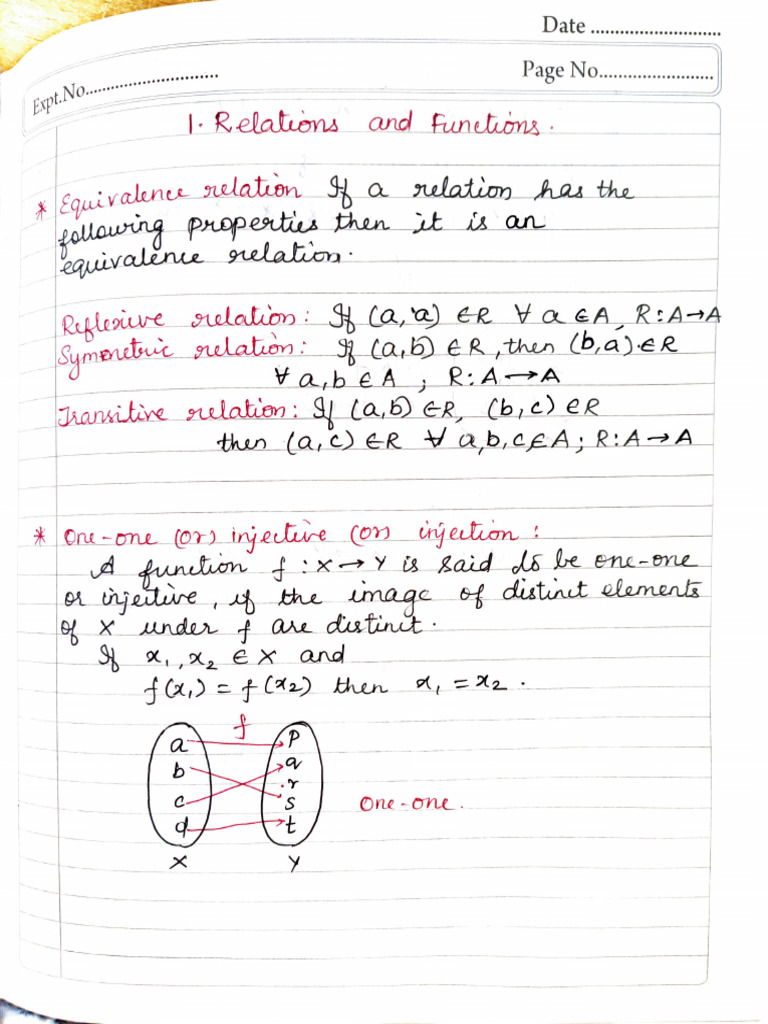 Date ............................
Expt.No............................
Page No........................
1. Relations and Functions.
* Equivalence relation If a relation has the
following properties then it is an
equivalence relation.
Reflexive relation: If (a, a) ∈R ∀ a ∈A, R:A→A
Symmetric relation: If (a,b) ∈R, then (b,a)∈R
∀ a,b ∈ A ; R:A→A
Transitive relation: If (a,b) ∈R, (b,c) ∈R
then (a,c) ∈R ∀ a,b,c∈A; R:A→A
* One-one (or) injective (or) injection :
A function f : X→Y is said to be one-one
or injective, if the image of distinct elements
of X under f are distinct.
If x₁, x₂ ∈ X and
f(x₁) = f(x₂) then x₁ = x₂.
f
a p
b q
r
c s
d t
One-one.
X Y